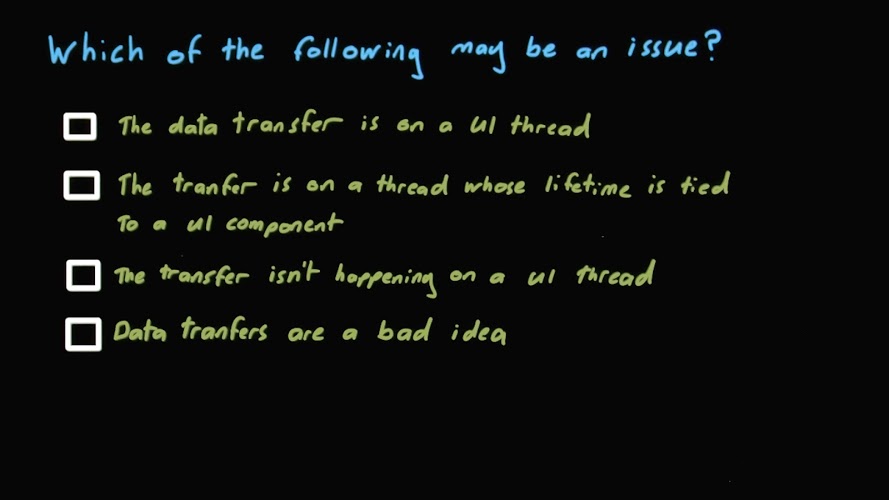 Which of the following may be an issue?
The data transfer is on a UI thread
The tranfer is on a thread whose lifetime is tied
To a UI component
The transfer isn't happening on a UI thread
Data tranfers are a bad idea